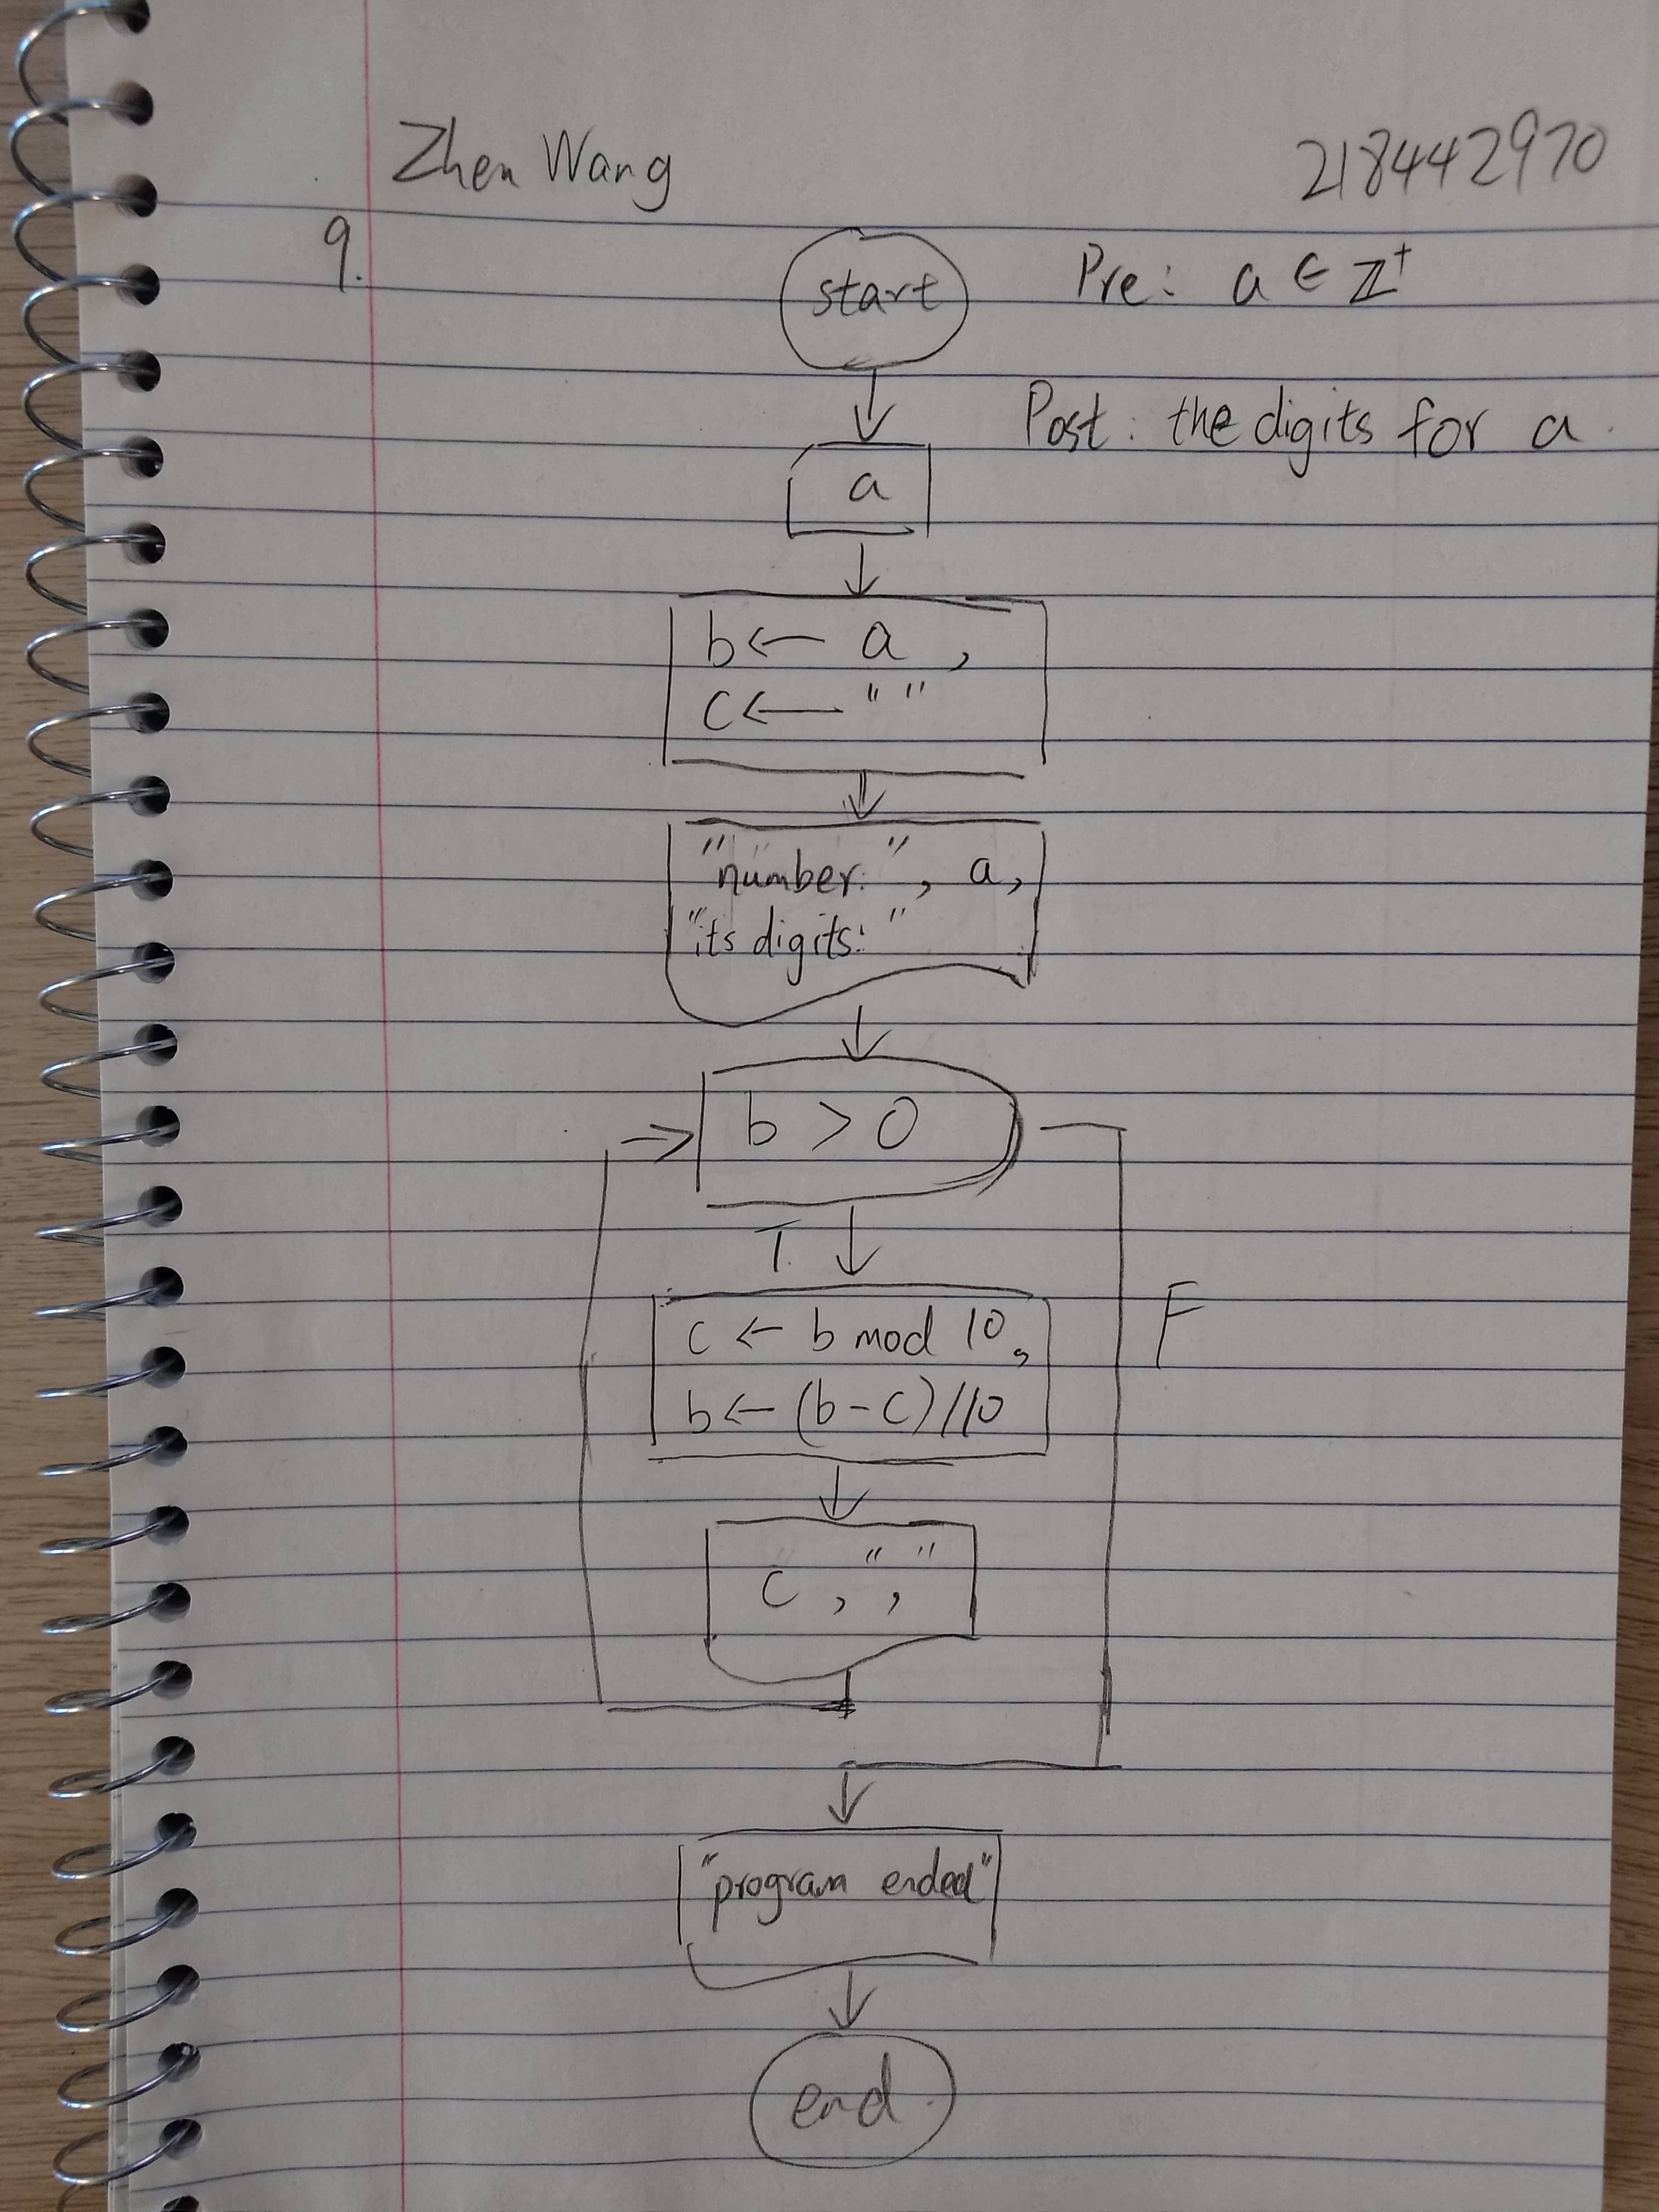 Zhen Wang 218442970
9.
start Pre: a ∈ ℤ⁺
Post: the digits for a.
a
b ← a ,
c ← " "
"number:", a,
"its digits:"
b > 0
T.
c ← b mod 10,
F
b ← (b-c)//10
c , ","
"program ended"
end.